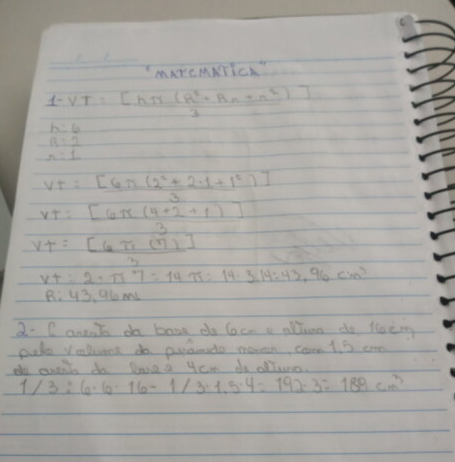 "MATEMATICA"
1- VT = [hπ (R² + Rr + r²)]
3
h: 6
R: 2
r: 1
VT: [6π (2² + 2·1 + 1²)]
3
VT: [6π (4+2+1)]
3
VT: [6π (7)]
3
VT: 2·π 7 = 14π = 14·3,14 = 43,96 cm³
R: 43,96 mL
2- aresta da base de 6cm e altura de 16cm
pelo volume da pirâmide menor com 1,5 cm
de aresta da base e 4cm de altura.
1/3 : 6·6·16 - 1/3·1,5·4 = 192·3 = 189 cm³